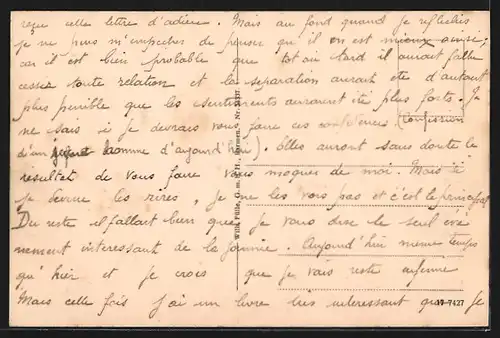 reçue cette lettre d'adieu. Mais au fond quand je réfléchis
je ne puis m'empêcher de penser qu'il en est mieux ainsi;
car il est bien probable que tot ou tard il aurait fallu
cesser toute relation et la séparation aurait été d'autant
plus penible que les sentiments auraient été plus forts. Je
ne sais si je devrais vous faire ces confidences (confession
d'un homme d'aujourd'hui). Elles auront sans doute le
resultat de vous faire vous moquer de moi. Mais si
je devine les rires, je ne les vois pas et c'est le principal
Du reste il fallait bien que je vous dise le seul évé
nement interessant de la journée. Aujourd'hui meme temps
qu'hier et je crois que je vais rester enfermé
Mais cette fois j'ai un livre très interessant que je
17-7427